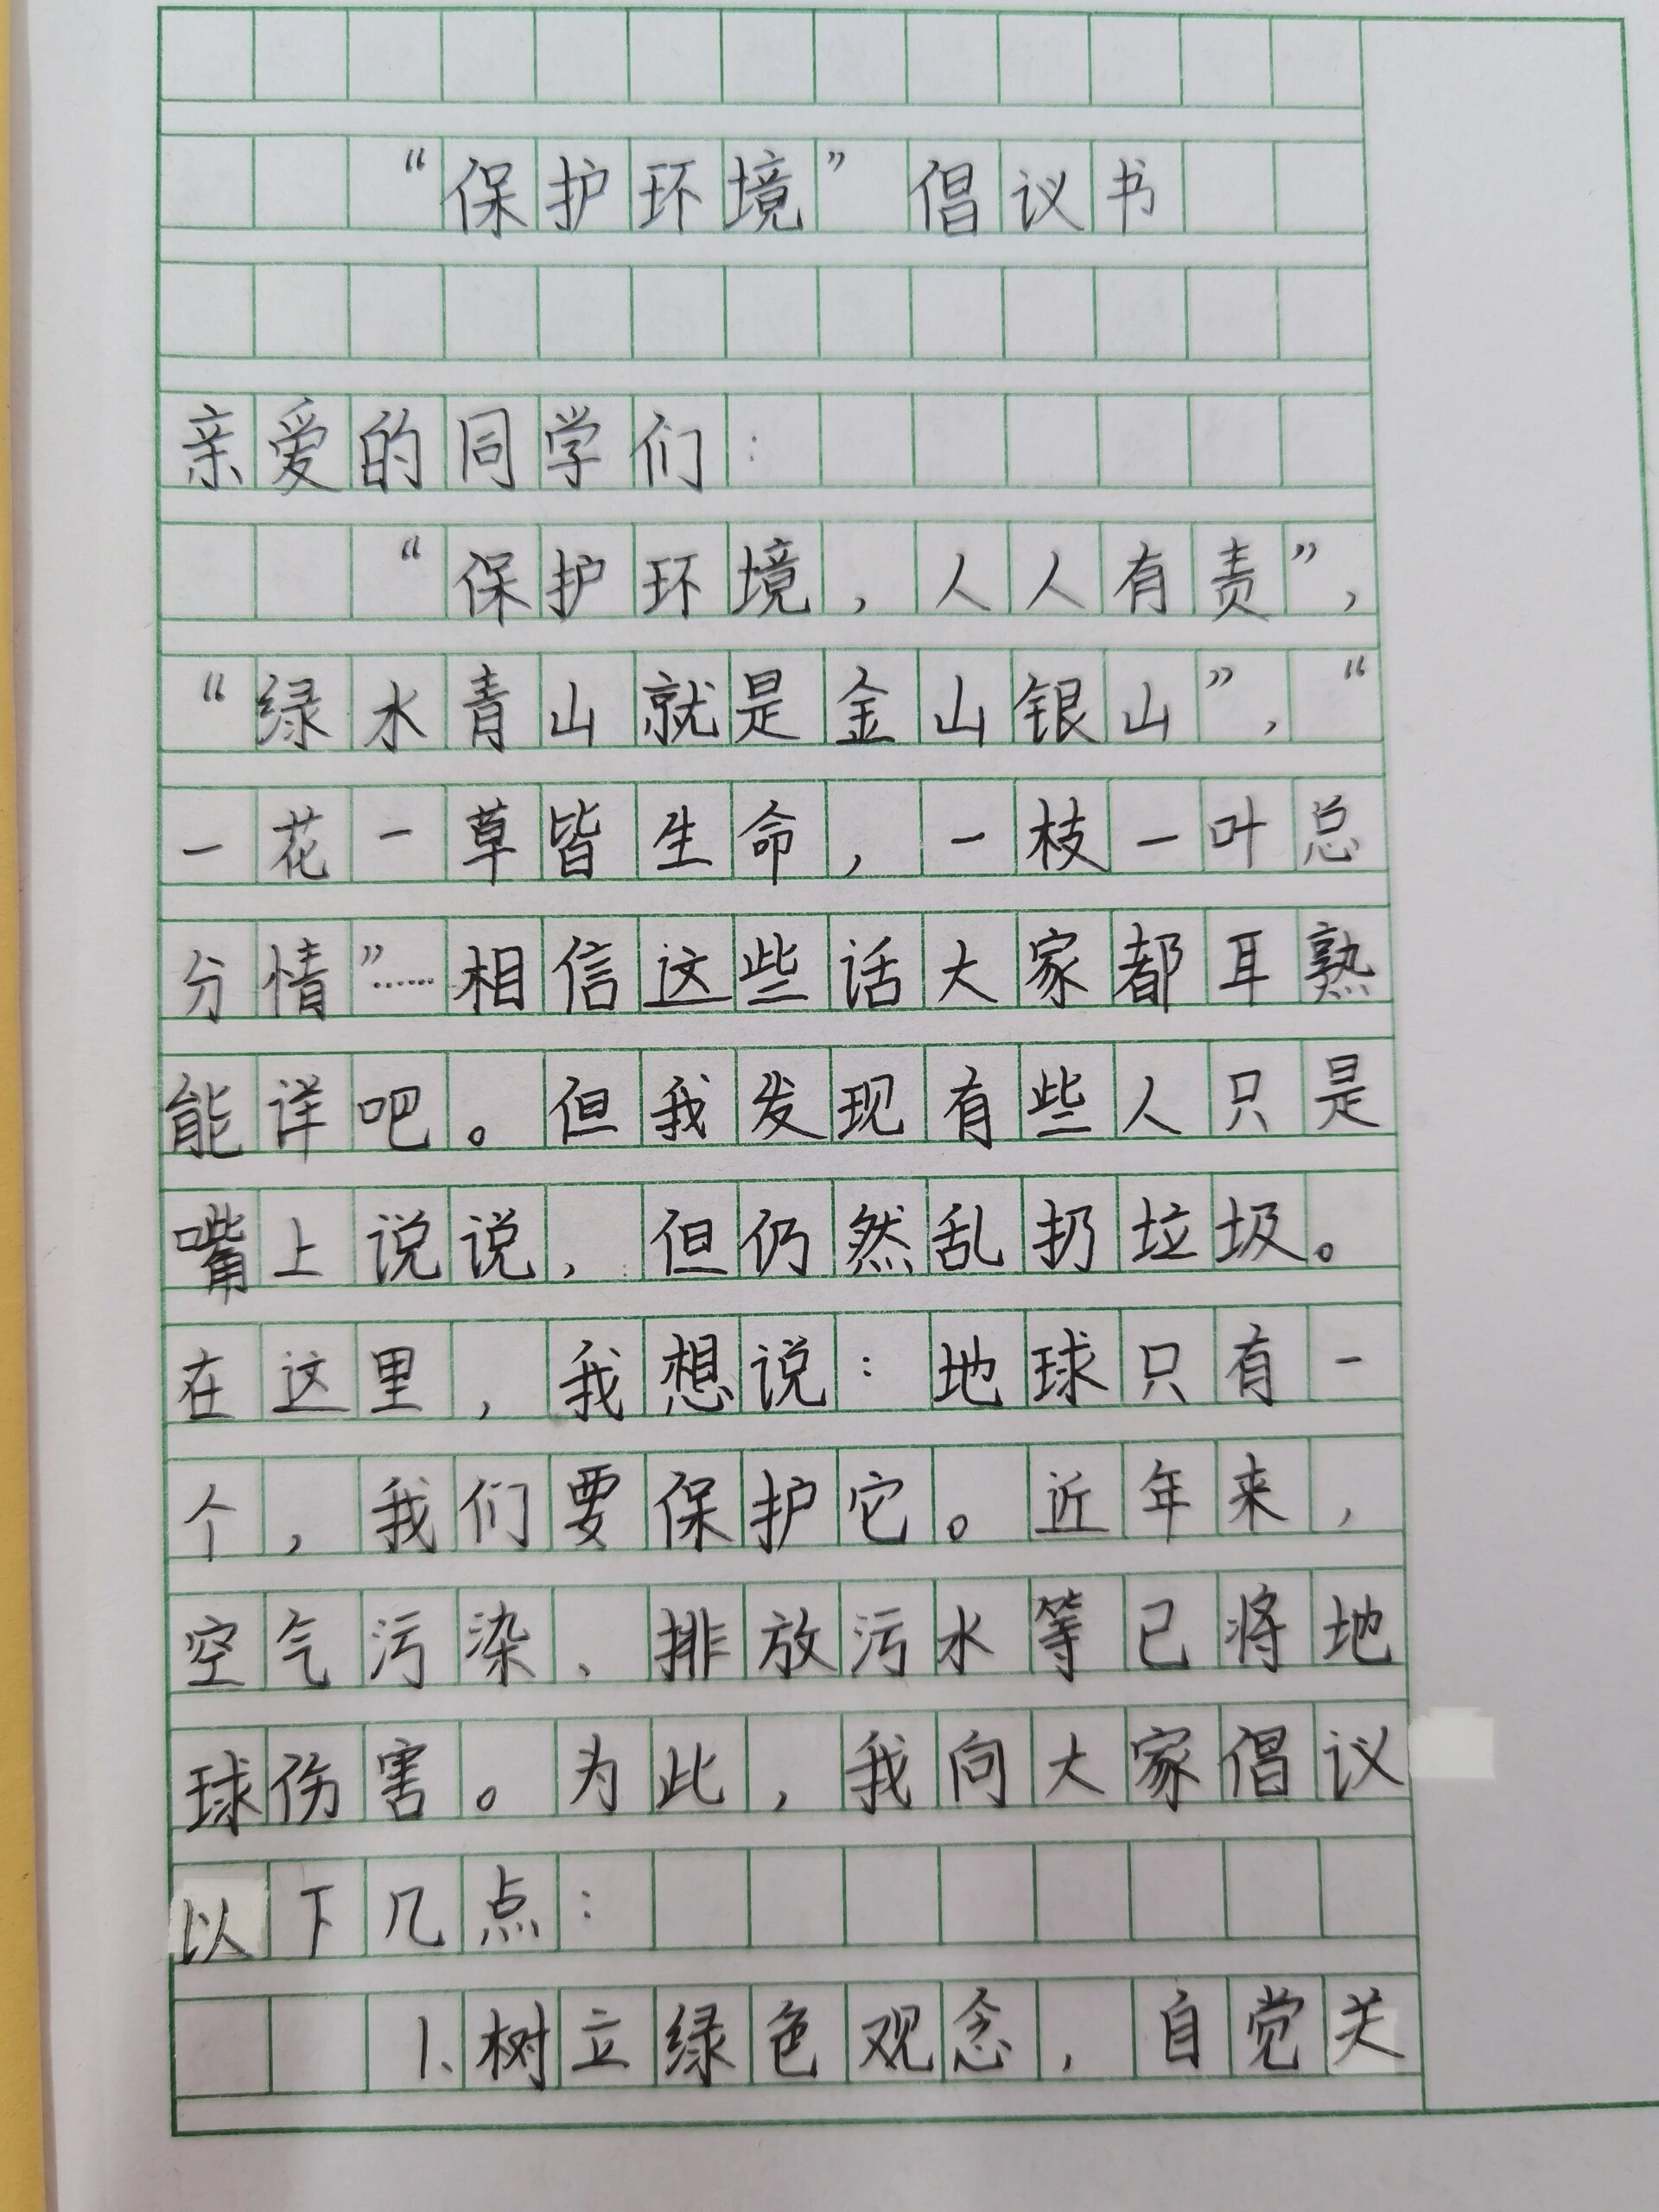 “保护环境”倡议书
亲爱的同学们：
“保护环境，人人有责”，
“绿水青山就是金山银山”，“
一花一草皆生命，一枝一叶总
分情”……相信这些话大家都耳熟
能详吧。但我发现有些人只是
嘴上说说，但仍然乱扔垃圾。
在这里，我想说：地球只有一
个，我们要保护它。近年来，
空气污染、排放污水等已将地
球伤害。为此，我向大家倡议
以下几点：
1、树立绿色观念，自觉关